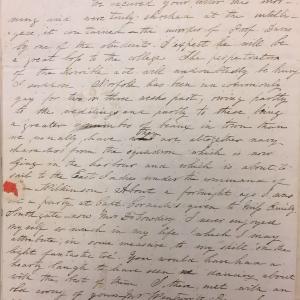 We received your letter this mor-
ning and were truly shocked at the intelli-
gence it contained - the murder of Prof Davis
by one of the students. I expect he will be
a great loss to the college. The perpetrator
of the horrible act will undoubtedly be hung
I suppose. Norfolk has been uncommonly
gay for two or three weeks past, owing partly
to the weddings and partly to there being
a greater number of beaux in town than
we usually are altogether navy
characters from the squadron which is now
lying in the harbour and which is about to
sail to the East Indies under the command of
Wilkinson. About a fortnight ago I was
a party at given to Miss Emily
now Mrs I never enjoyed
myself so much in my life which I may
attribute in some measure to my skill on the
light fantastic toe. You would have had a
hearty laugh to have seen me dancing about
with the best of them. I there met with an
old crony of yours